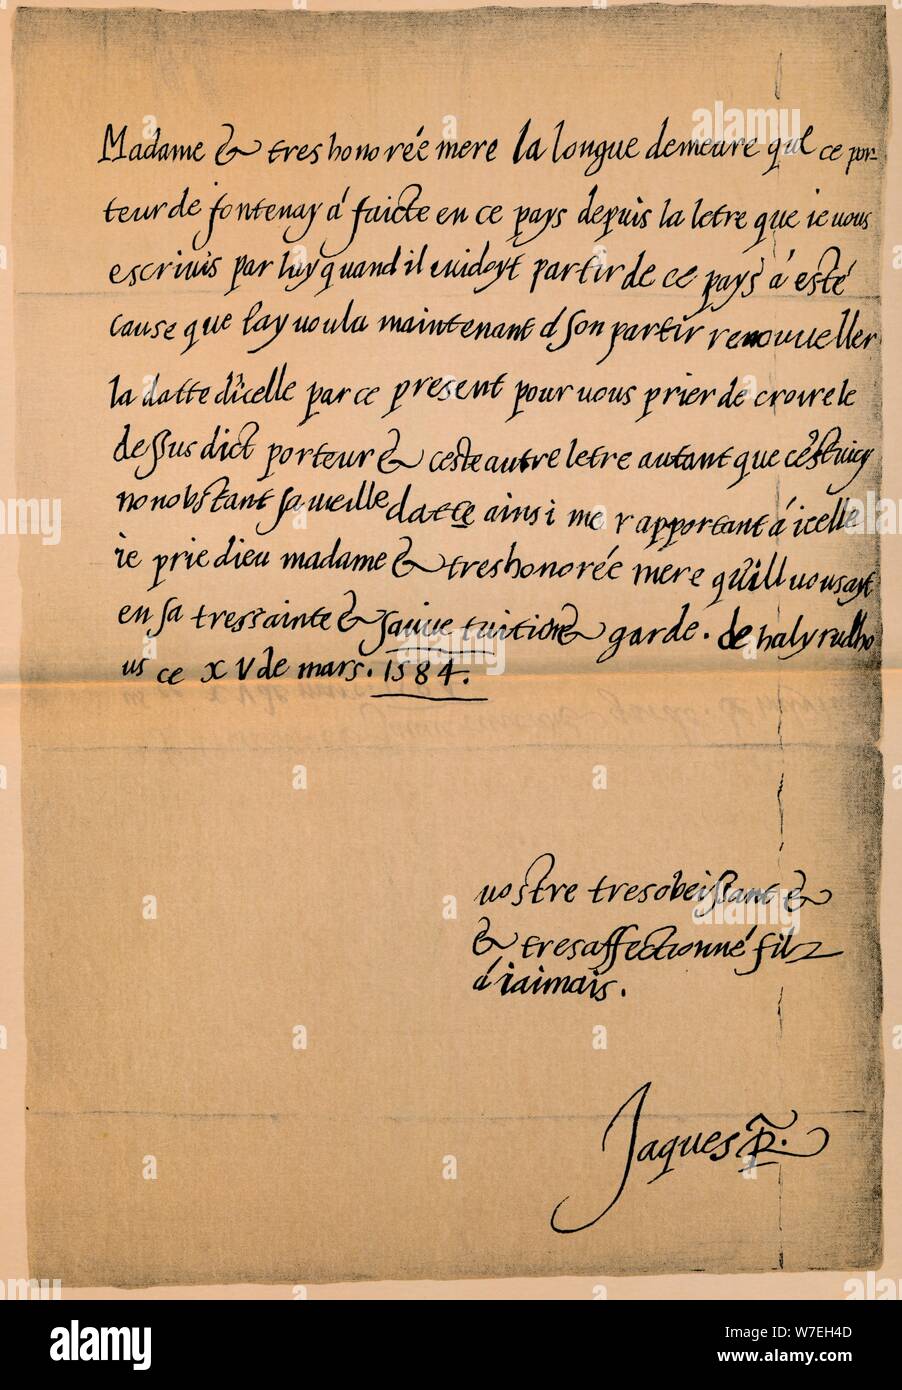 Madame & treshonorée mere la longue demeure que ce por-
teur de fontenay á faicte en ce pays depuis la letre que ie vous
escrivis par luy quand il cuidoyt partir de ce pays á esté
cause que lay voulu maintenant a son partir renouveller
la datte d'icelle par ce present pour vous prier de croire le
dessus dict porteur & ceste autre letre autant que cestuicy
nonobstant sa vieille datte ainsi me rapportant á icelle
ie prie dieu madame & treshonorée mere qu'ill vous ayt
en sa tressainte & sauve tuition & garde. de halyrudho
us ce XV de mars. 1584.
vostre tresobeissant &
& tresaffectionné filz
á iaimais.
Jaques R.
alamy
Image ID: W7EH4D
www.alamy.com